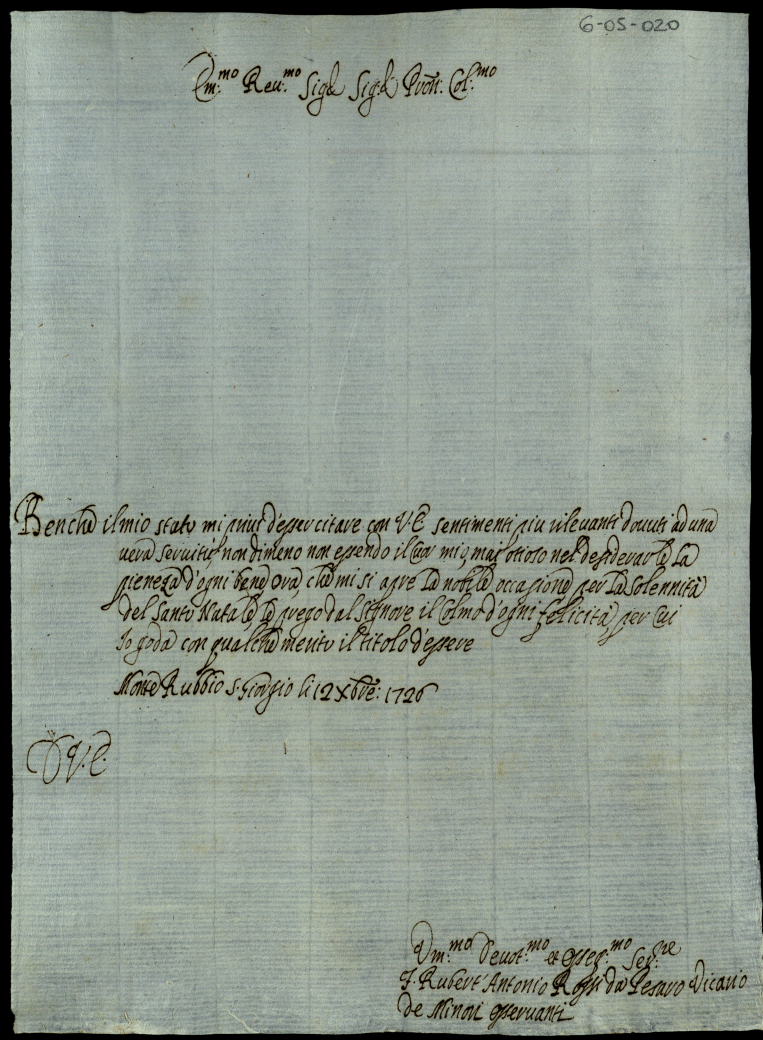 6-05-020
Em:mo Reu:mo Sig.r Sig.r Pron: Col:mo
Benche il mio stato mi priui d'essercitare con V.E. sentimenti piu rileuanti douuti ad una
uera seruitù, nondimeno non essendo il Cor mio mai otioso nel desiderarle la
pieneza d'ogni bene Ora, che mi si apre la nobile occasione per la solennità
del Santo Natale le prego dal Signore il Colmo d'ogni felicità, per cui
Io goda con qualche merito il titolo d'essere
Monte Rubbio S. Giorgio li 12 Xbre: 1726
D V.E.
Vm:mo Deuot:mo et osseq:mo Ser:re
F. Rubert' Antonio Rossi da Pesaro Vicario
de Minori osseruanti